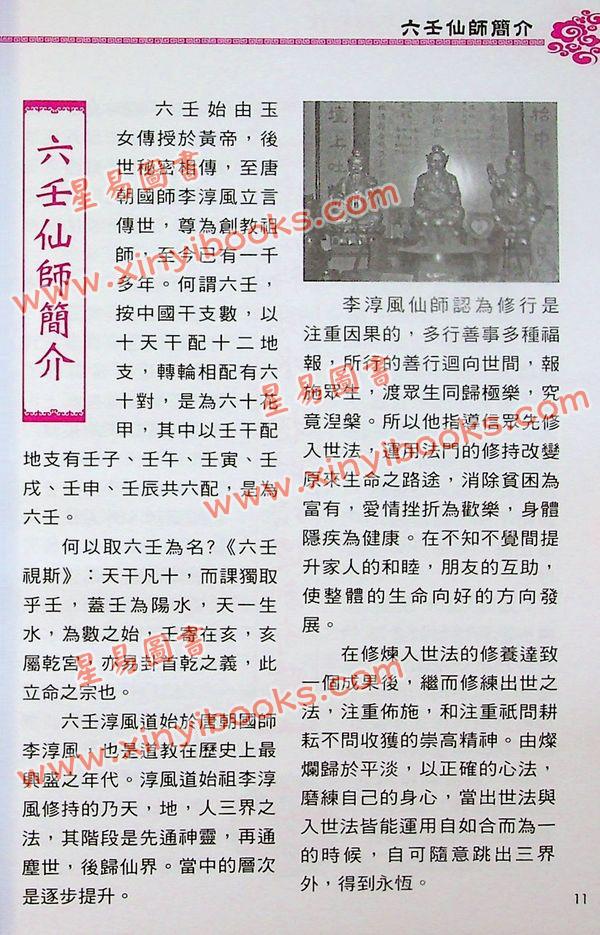 六壬仙師簡介
六壬仙師簡介
六壬始由玉
女傳授於黃帝，後
世秘密相傳，至唐
朝國師李淳風立言
傳世，尊為創教祖
師，至今已有一千
多年。何謂六壬，
按中國干支數，以
十天干配十二地
支，轉輪相配有六
十對，是為六十花
甲，其中以壬干配
地支有壬子、壬午、壬寅、壬
戌、壬申、壬辰共六配，是為
六壬。
何以取六壬為名?《六壬
視斯》：天干凡十，而課獨取
乎壬，蓋壬為陽水，天一生
水，為數之始，壬寄在亥，亥
屬乾宮，亦易卦首乾之義，此
立命之宗也。
六壬淳風道始於唐朝國師
李淳風，也是道教在歷史上最
興盛之年代。淳風道始祖李淳
風修持的乃天，地，人三界之
法，其階段是先通神靈，再通
塵世，後歸仙界。當中的層次
是逐步提升。
李淳風仙師認為修行是
注重因果的，多行善事多種福
報，所行的善行迴向世間，報
施眾生，渡眾生同歸極樂，究
竟涅槃。所以他指導信眾先修
入世法，運用法門的修持改變
原來生命之路途，消除貧困為
富有，愛情挫折為歡樂，身體
隱疾為健康。在不知不覺間提
升家人的和睦，朋友的互助，
使整體的生命向好的方向發
展。
在修煉入世法的修養達致
一個成果後，繼而修練出世之
法，注重佈施，和注重祇問耕
耘不問收獲的崇高精神。由燦
爛歸於平淡，以正確的心法，
磨練自己的身心，當出世法與
入世法皆能運用自如合而為一
的時候，自可隨意跳出三界
外，得到永恆。
11
星易圖書
www.xinyibooks.com
星易圖書
www.xinyibooks.com
星易圖書
www.xinyibooks.com